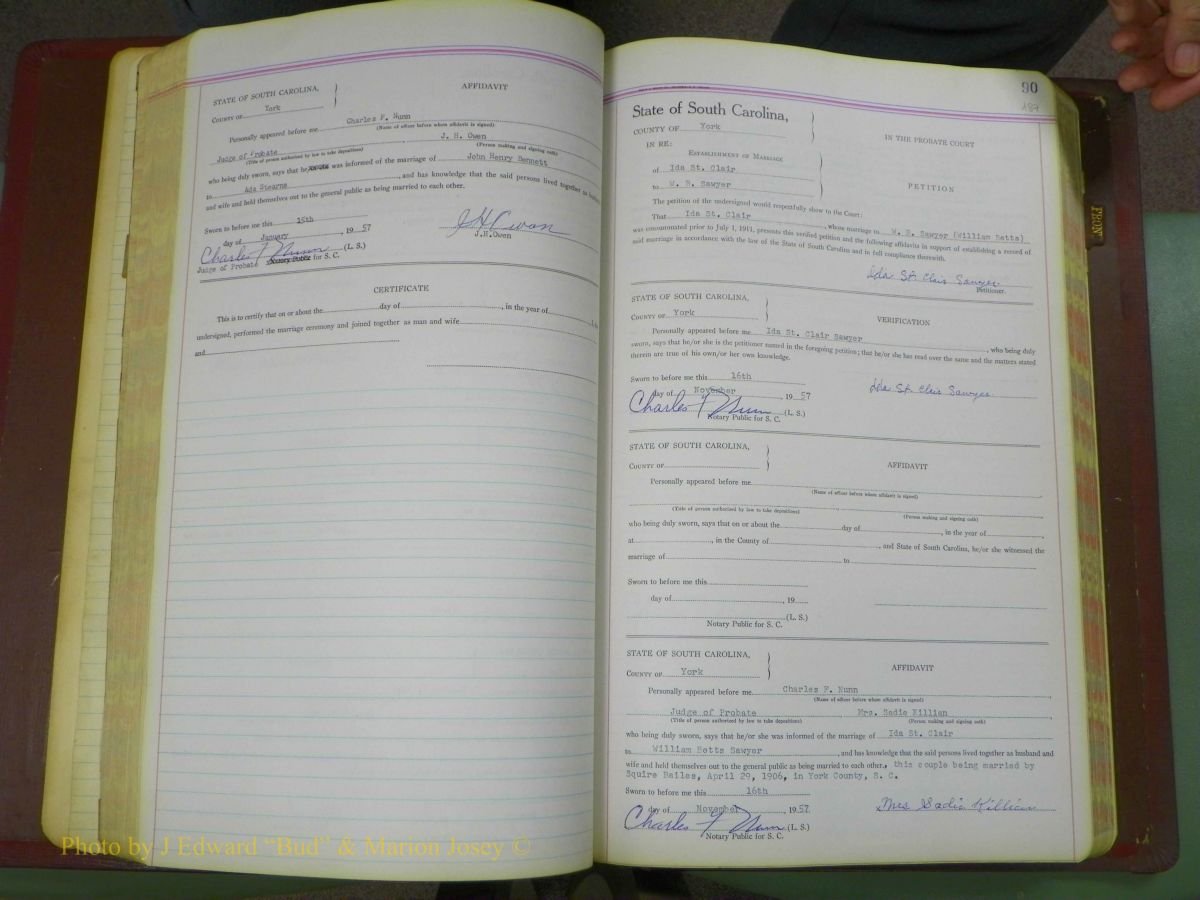 STATE OF SOUTH CAROLINA,
AFFIDAVIT
COUNTY OF York
Personally appeared before me Charles F. Nunn
(Name of officer before whom affidavit is signed)
Judge of Probate J. H. Owen
(Title of person authorized by law to take depositions) (Person making and signing oath)
who being duly sworn, says that he was informed of the marriage of John Henry Bennett
to Ada Stearns, and has knowledge that the said persons lived together as
and wife and held themselves out to the general public as being married to each other.
Sworn to before me this 15th
day of January, 1957
J H Owen
J.H.Owen
Charles F Nunn (L. S.)
Judge of Probate Notary Public for S. C.
CERTIFICATE
This is to certify that on or about the day of, in the year of
undersigned, performed the marriage ceremony and joined together as man and wife
and
90
187
State of South Carolina,
COUNTY OF York
IN THE PROBATE COURT
IN RE:
ESTABLISHMENT OF MARRIAGE
of Ida St. Clair
to W. B. Sawyer
PETITION
The petition of the undersigned would respectfully show to the Court:
That Ida St. Clair, whose marriage to W. B. Sawyer (William Betts)
was consummated prior to July 1, 1911, presents this verified petition and the following affidavits in support of establishing a record of
said marriage in accordance with the law of the State of South Carolina and in full compliance therewith.
Ida St. Clair Sawyer
Petitioner.
STATE OF SOUTH CAROLINA,
COUNTY OF York
VERIFICATION
Personally appeared before me Ida St. Clair Sawyer, who being duly
sworn, says that he/or she is the petitioner named in the foregoing petition; that he/or she has read over the same and the matters stated
therein are true of his own/or her own knowledge.
Sworn to before me this 16th
day of November, 1957
Ida St. Clair Sawyer
Charles F Nunn (L. S.)
Notary Public for S. C.
STATE OF SOUTH CAROLINA,
COUNTY OF
AFFIDAVIT
Personally appeared before me
(Name of officer before whom affidavit is signed)
(Title of person authorized by law to take depositions) (Person making and signing oath)
who being duly sworn, says that on or about the day of, in the year of,
at, in the County of, and State of South Carolina, he/or she witnessed the
marriage of to
Sworn to before me this
day of, 19
(L. S.)
Notary Public for S. C.
STATE OF SOUTH CAROLINA,
COUNTY OF York
AFFIDAVIT
Personally appeared before me Charles F. Nunn
(Name of officer before whom affidavit is signed)
Judge of Probate, Mrs. Sadie Killian
(Title of person authorized by law to take depositions) (Person making and signing oath)
who being duly sworn, says that he/or she was informed of the marriage of Ida St. Clair
to William Betts Sawyer, and has knowledge that the said persons lived together as husband and
wife and held themselves out to the general public as being married to each other., this couple being married by
Squire Bailes, April 29, 1906, in York County, S. C.
Sworn to before me this 16th
day of November, 1957.
Mrs Sadie Killian
Charles F Nunn (L. S.)
Notary Public for S. C.
FRON
Photo by J Edward "Bud" & Marion Josey ©